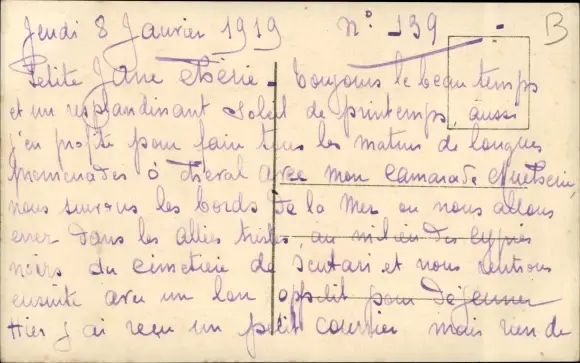 Jeudi 8 Janvier 1919 N° 139 - B
Petite Jane chérie - toujours le beau temps
et un resplandissant soleil de printemps, aussi
j'en profite pour faire tous les matins de longues
promenades à cheval avec mon camarade
nous suivons les bords de la Mer ou nous allons
errer dans les allées tristes, au milieu des cyprès
noirs du cimetière de Scutari et nous rentrons
ensuite avec un bon appétit pour déjeuner
Hier j'ai reçu un petit courrier mais rien de